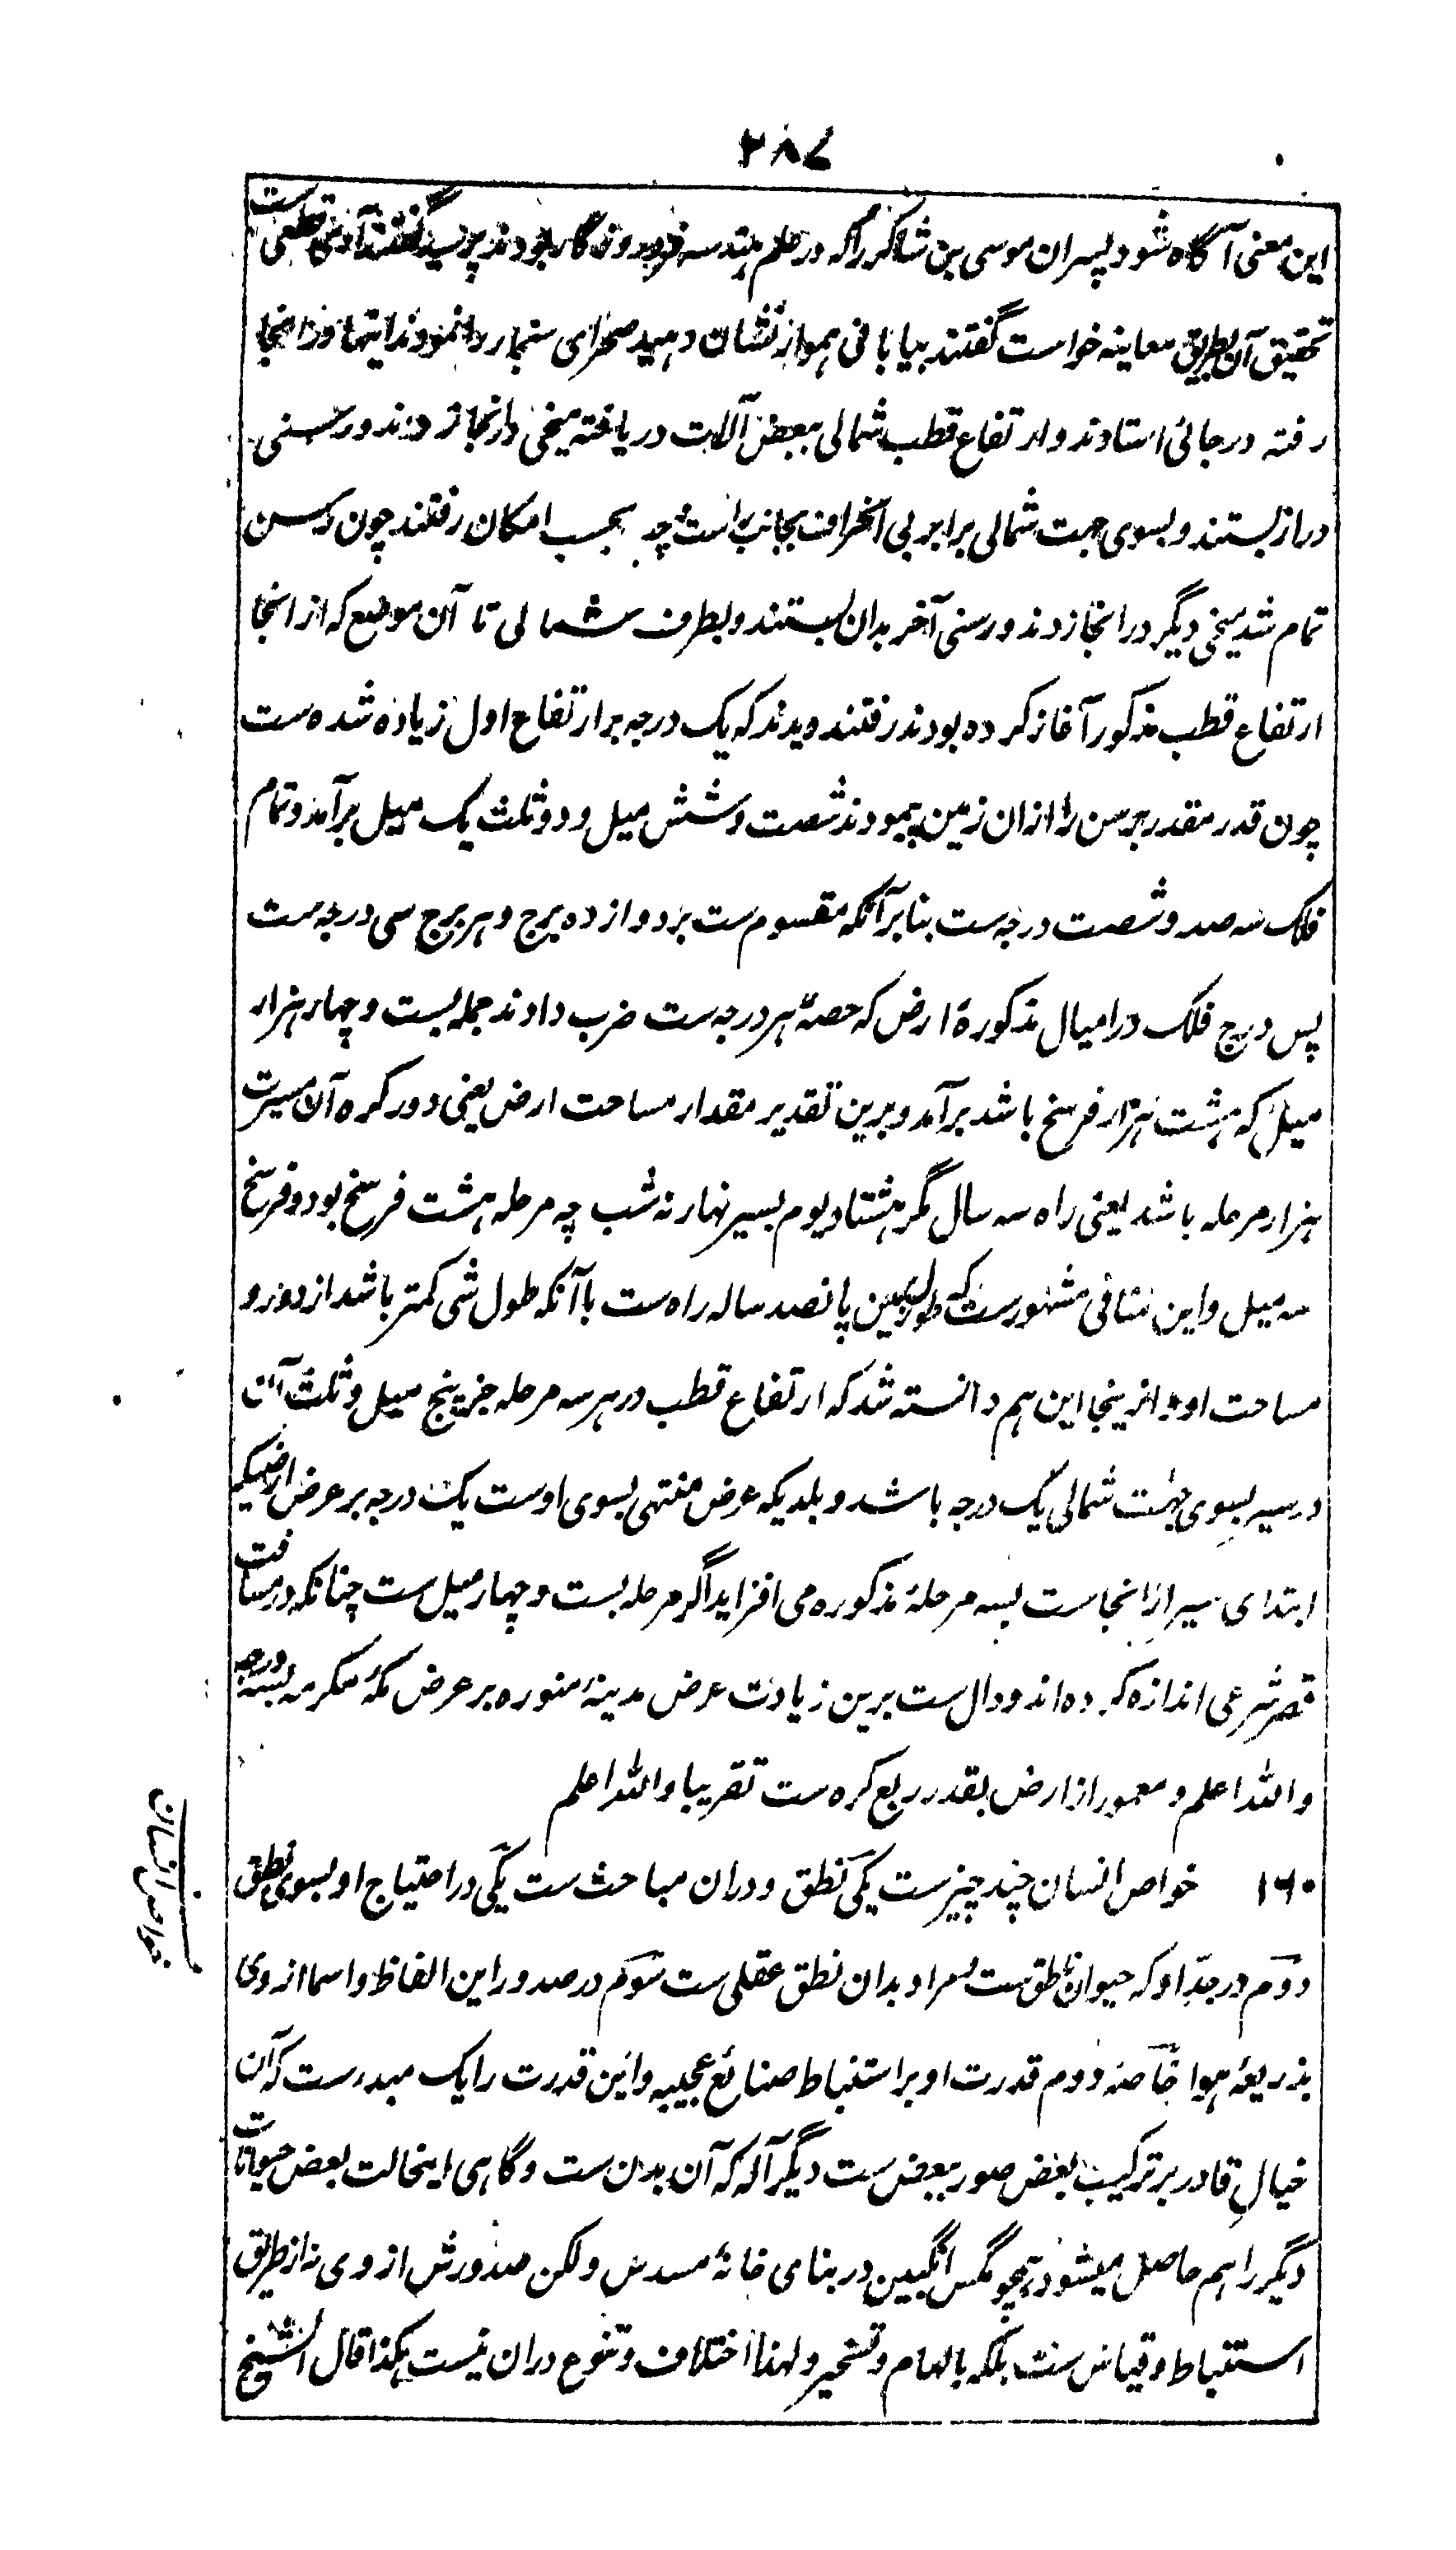 ۲۸۷
این معنی آگاه شود پسران موسی بن شاکر را که در علم هندسه فرد روزگار بودند پرسید گفتند آری قطعی ست
تحقیق آن بطریق معاینه خواست گفتند بیابانی هموار نشان دهید صحرای سنجار را نمودند اینها درانجا
رفته در جائی استادند و ارتفاع قطب شمالی ببعض آلات دریافته میخی درانجا زدند و رسنی
دراز بستند و بسوی جهت شمالی برابر بی انحراف بجانب راست و چپ بحسب امکان رفتند چون رسن
تمام شد میخی دیگر درانجا زدند و رسنی آخر بدان بستند و بطرف شمالی تا آن موضع که از انجا
ارتفاع قطب مذکور آغاز کرده بودند رفتند دیدند که یک درجه بر ارتفاع اول زیاده شده ست
چون قدر مقدر برسن را ازان زمین پیمودند شصت و شش میل و دو ثلث یک میل برآمد و تمام
فلک سه صد و شصت درجه ست بنا بر آنکه مقسوم ست بر دوازده برج و هر برج سی درجه ست
پس درج فلک در امیال مذکورهٔ ارض که حصهٔ هر درجه ست ضرب دادند جمله بست و چهار هزار
میل که هشت هزار فرسخ باشد برآمد و برین تقدیر مقدار مساحت ارض یعنی دور کره آن مسیرت
هزار مرحله باشد یعنی راه سه سال مگر هشتاد یوم بسیر نهار نه شب چه مرحله هشت فرسخ بود و فرسخ
سه میل و این منافی مشهور ست که طول زمین پانصد ساله راه ست با آنکه طول شی کمتر باشد از دور و
مساحت او و ازینجا این هم دانسته شد که ارتفاع قطب در هر سه مرحله جز پنج میل و ثلث آن
در سیر بسوی جهت شمالی یک درجه باشد و بلدیکه عرض منتهی بسوی اوست یک درجه بر عرض ارضیکه
ابتدای سیر از انجاست بسه مرحلهٔ مذکوره می افزاید اگر مرحله بست و چهار میل ست چنانکه در مسافت
قصر شرعی اندازه کرده اند و دال ست برین زیادت عرض مدینهٔ منوره بر عرض مکهٔ مکرمه بسه درجه
والله اعلم و معمور از ارض بقدر ربع کره ست تقریبا والله اعلم
خواص انسان
۱۶۰ خواص انسان چند چیز ست یکی نطق و دران مباحث ست یکی در احتیاج او بسوی نطق
دوم در حد او که حیوان ناطق ست مراد بدان نطق عقلی ست سوم در صدور این الفاظ و اسما از وی
بذریعهٔ هوا خاصهٔ دوم قدرت او بر استنباط صنائع عجیبه و این قدرت را یک مبدء ست که آن
خیال قادر بر ترکیب بعض صور ببعض ست دیگر آله که آن بدن ست و گاهی اینحالت بعض حیوانات
دیگر را هم حاصل میشود همچو مگس انگبین در بنای خانهٔ مسدس ولکن صدورش از وی نه از طریق
استنباط و قیاس ست بلکه بالهام و تسخیر ولهذا اختلاف و تنوع دران نیست هکذا قال الشیخ